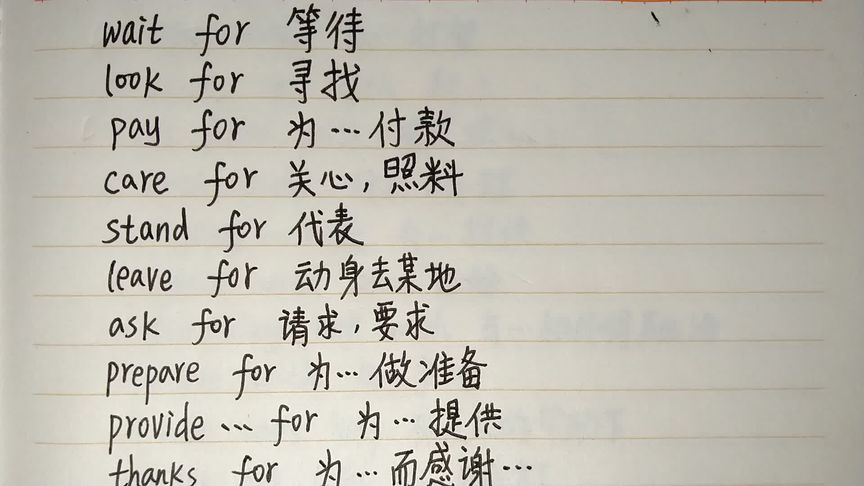 wait for 等待
look for 寻找
pay for 为…付款
care for 关心,照料
stand for 代表
leave for 动身去某地
ask for 请求,要求
prepare for 为…做准备
provide … for 为…提供
thanks for 为…而感谢…